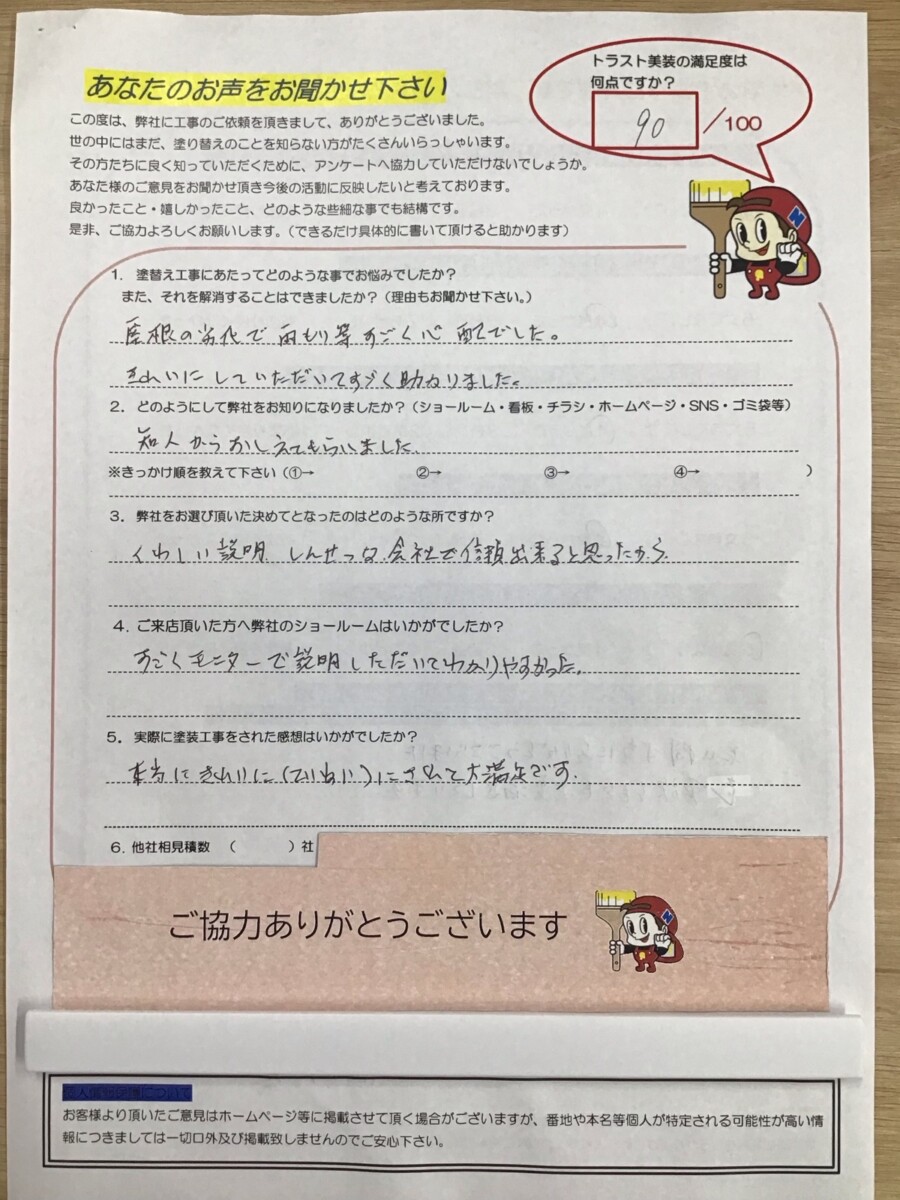 あなたのお声をお聞かせ下さい
トラスト美装の満足度は
何点ですか？
90 /100
この度は、弊社に工事のご依頼を頂きまして、ありがとうございました。
世の中にはまだ、塗り替えのことを知らない方がたくさんいらっしゃいます。
その方たちに良く知っていただくために、アンケートへ協力していただけないでしょうか。
あなた様のご意見をお聞かせ頂き今後の活動に反映したいと考えております。
良かったこと・嬉しかったこと、どのような些細な事でも結構です。
是非、ご協力よろしくお願いします。（できるだけ具体的に書いて頂けると助かります）
1. 塗替え工事にあたってどのような事でお悩みでしたか？
また、それを解消することはできましたか？（理由もお聞かせ下さい。）
屋根の劣化で雨もり等すごく心配でした。
きれいにしていただいてすごく助かりました。
2. どのようにして弊社をお知りになりましたか？（ショールーム・看板・チラシ・ホームページ・SNS・ゴミ袋等）
知人からおしえてもらいました.
※きっかけ順を教えて下さい（①→ ②→ ③→ ④→ ）
3. 弊社をお選び頂いた決めてとなったのはどのような所ですか？
くわしい説明 しんせつな会社で信頼出来ると思ったから.
4. ご来店頂いた方へ弊社のショールームはいかがでしたか？
すごくモニターで説明しただいてわかりやすかった.
5. 実際に塗装工事をされた感想はいかがでしたか？
本当にきれいに(ていねい)にされて大満足です.
6. 他社相見積数 （ ）社
ご協力ありがとうございます
個人情報保護について
お客様より頂いたご意見はホームページ等に掲載させて頂く場合がございますが、番地や本名等個人が特定される可能性が高い情
報につきましては一切口外及び掲載致しませんのでご安心下さい。